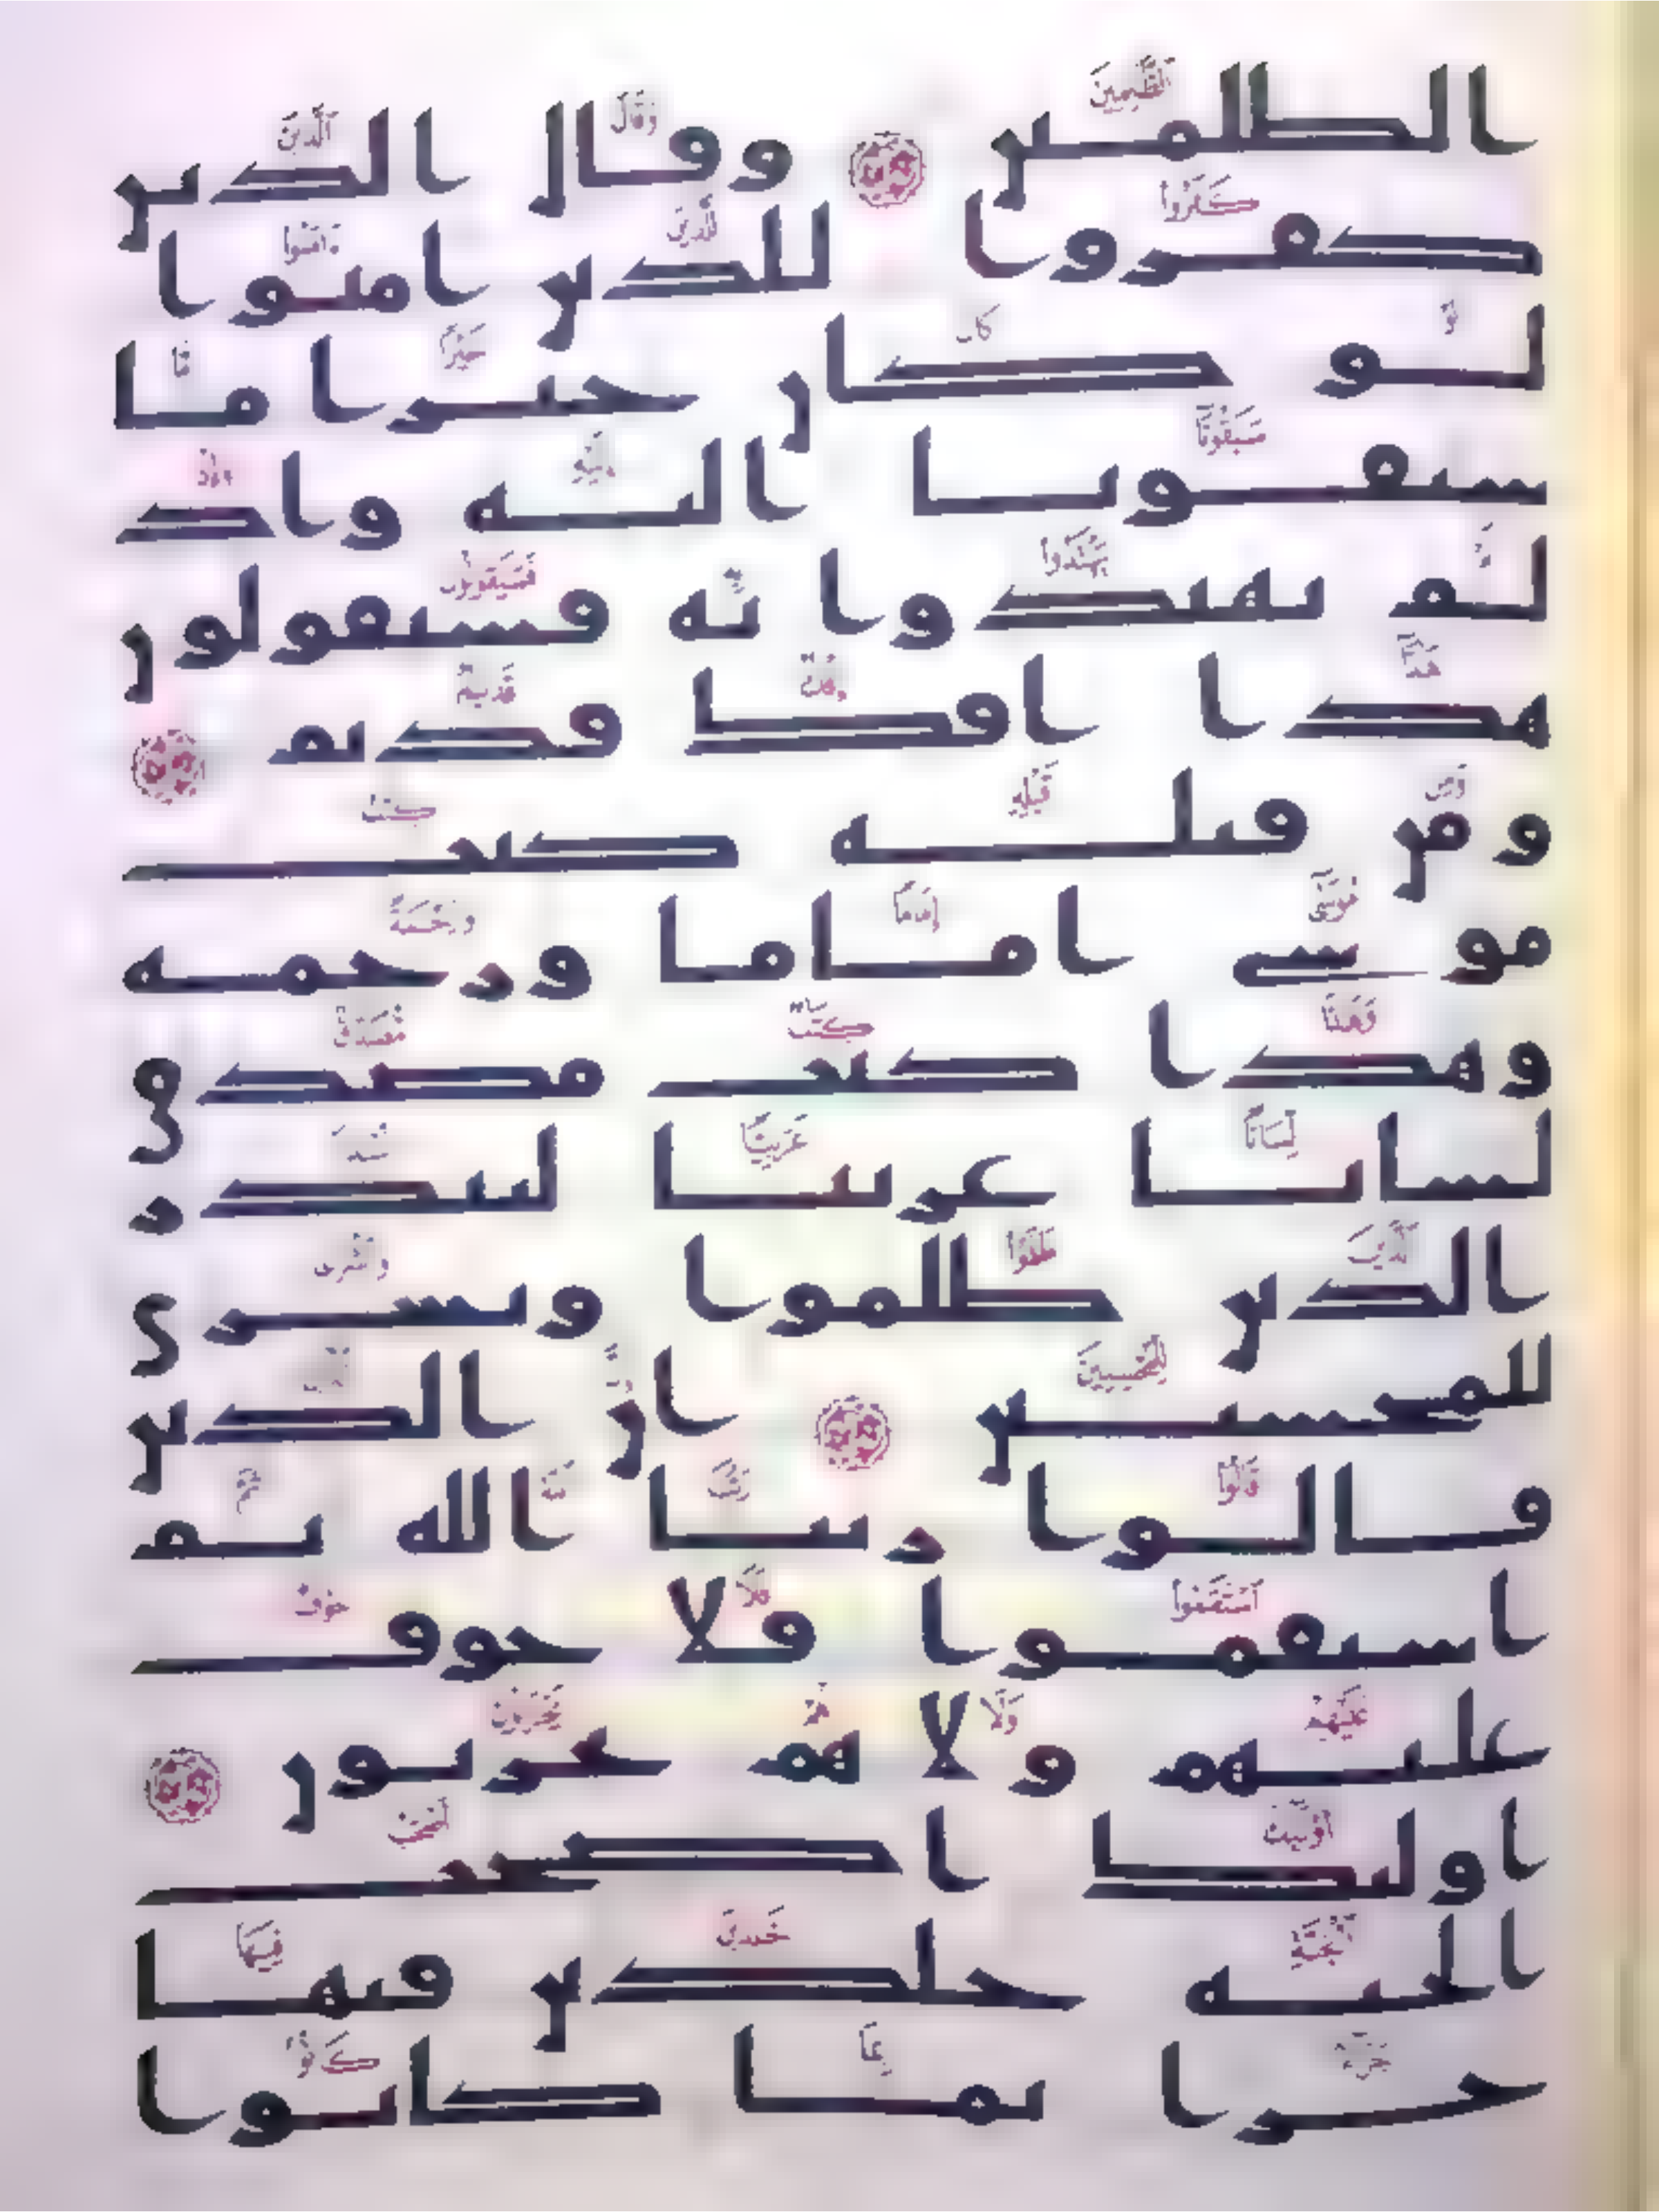 الظلمين وقال الذين
كفروا للذين ءامنوا
لو كان خيرا ما
سبقونا إليه وإذ
لم يهتدوا به فسيقولون
هذا إفك قديم
ومن قبله كتب
موسى إماما ورحمة
وهذا كتب مصدق
لسانا عربيا لينذر
الذين ظلموا وبشرى
للمحسنين إن الذين
قالوا ربنا الله ثم
استقموا فلا خوف
عليهم ولا هم يحزنون
أولئك أصحب
الجنة خلدين فيها
جزاء بما كانوا